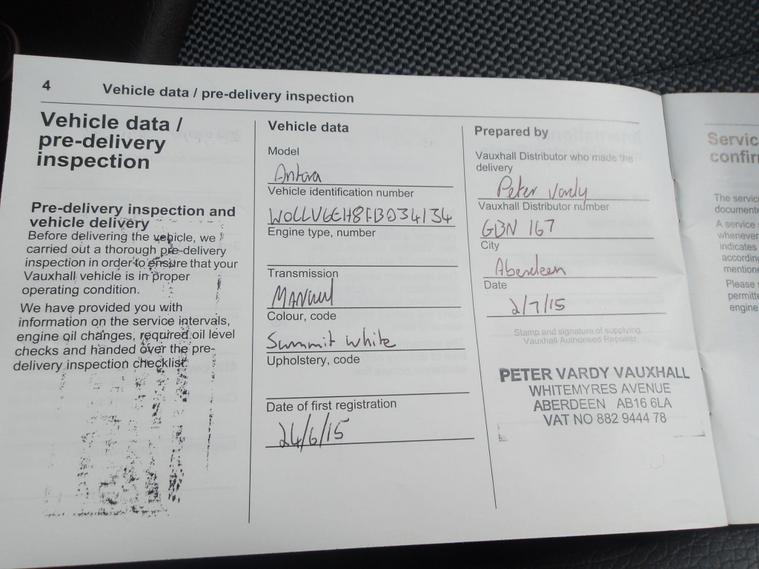 4 Vehicle data / pre-delivery inspection
Vehicle data /
pre-delivery
inspection
Pre-delivery inspection and
vehicle delivery
Before delivering the vehicle, we
carried out a thorough pre-delivery
inspection in order to ensure that your
Vauxhall vehicle is in proper
operating condition.
We have provided you with
information on the service intervals,
engine oil changes, required oil level
checks and handed over the pre-
delivery inspection checklist.
Vehicle data
Model
Antara
Vehicle identification number
Engine type, number
Transmission
Manual
Colour, code
Summit White
Upholstery, code
Date of first registration
24/6/15
Prepared by
Vauxhall Distributor who made the
delivery
Peter Vardy
Vauxhall Distributor number
GBN 167
City
Aberdeen
Date
2/7/15
Stamp and signature of supplying
Vauxhall Authorised Repairer
PETER VARDY VAUXHALL
WHITEMYRES AVENUE
ABERDEEN AB16 6LA
VAT NO 882 9444 78
Servic
confir
The servic
document
A service
whenever
indicates
accordin
mentione
Please
permitte
engine